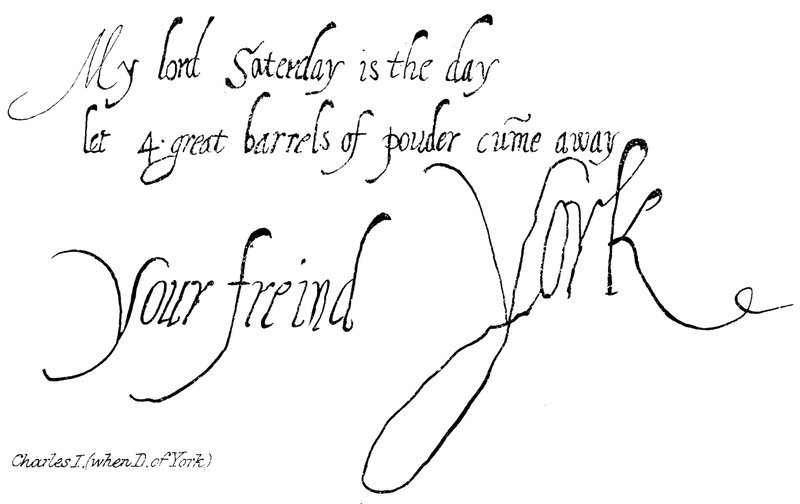 My lord Saterday is the day
let 4 great barrels of pouder cum̃e away
Your freind York
Charles I. (when D. of York)